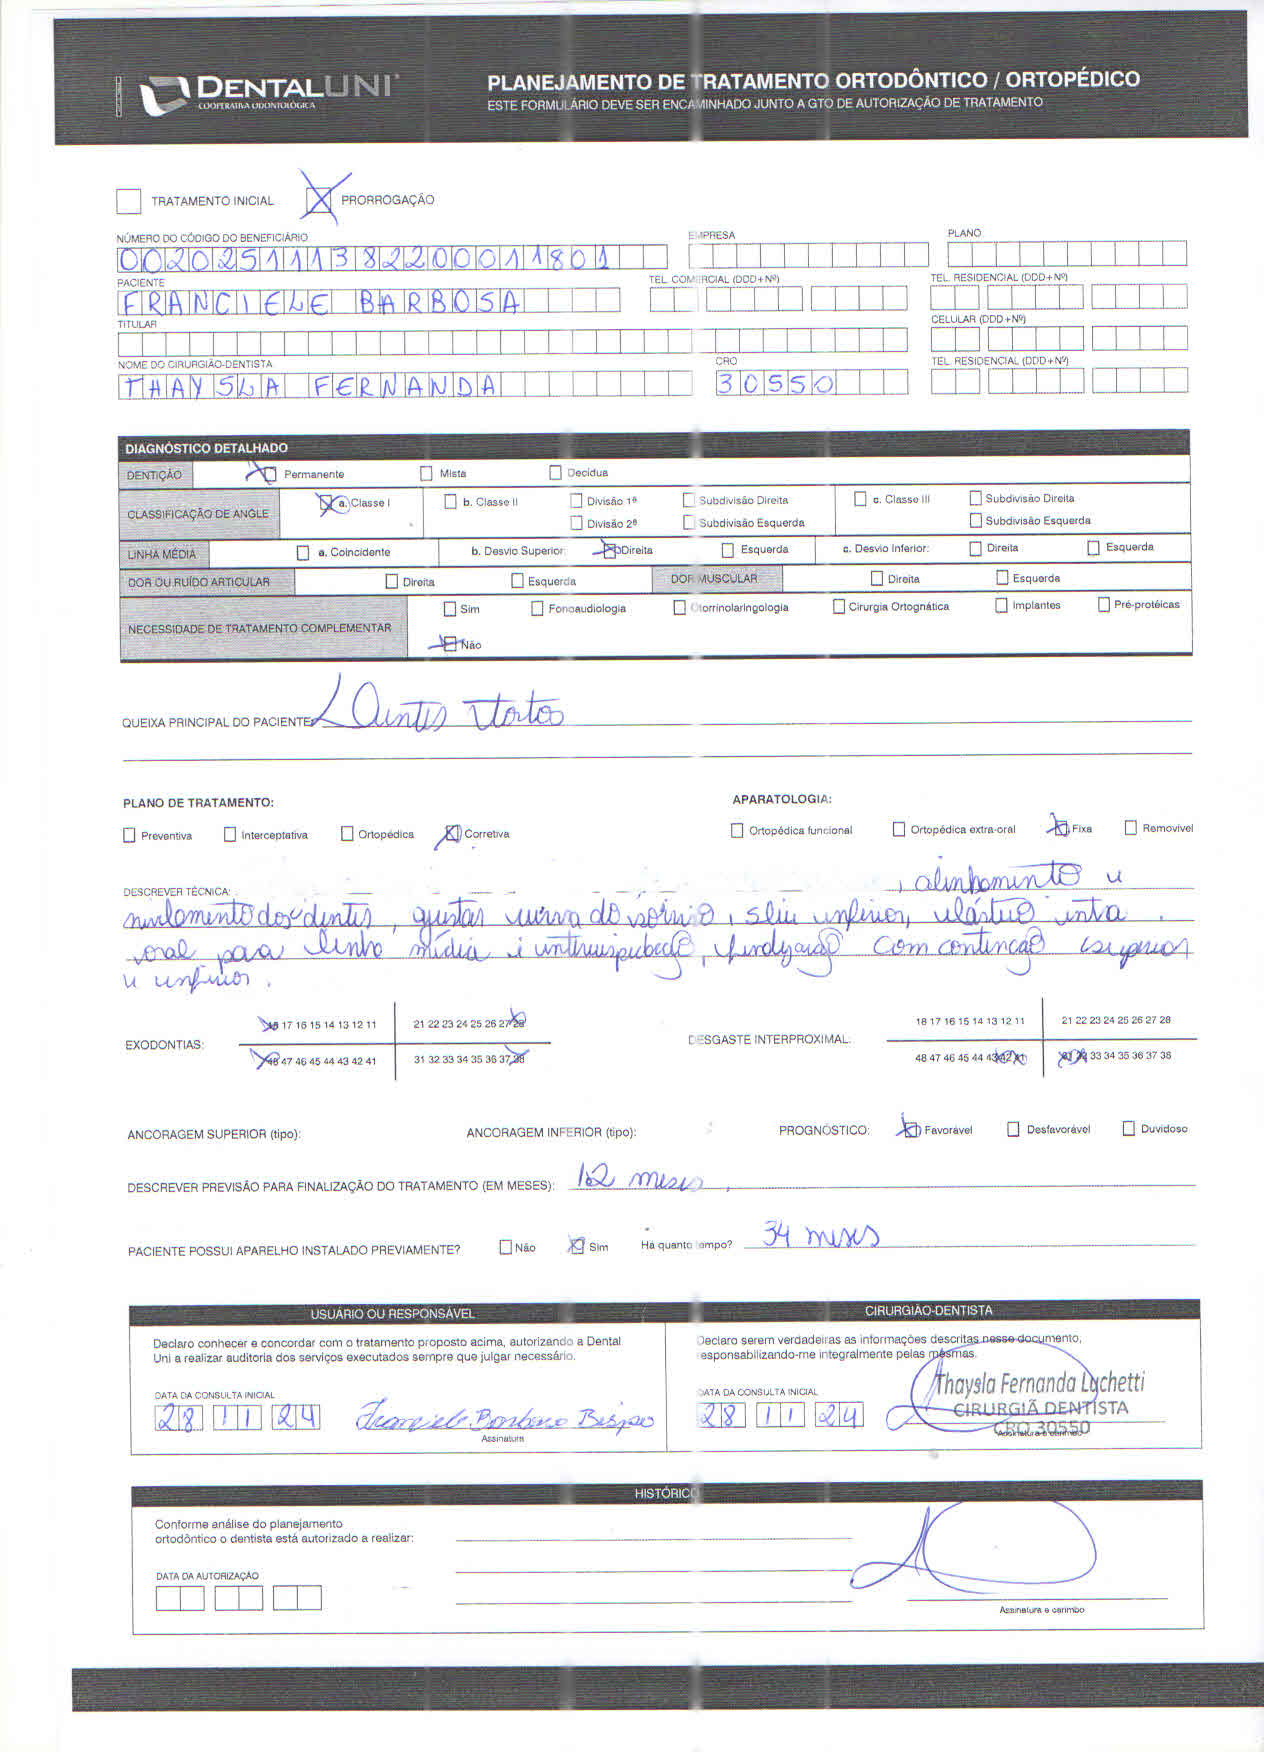 DENTALUNI
COOPERATIVA ODONTOLÓGICA
PLANEJAMENTO DE TRATAMENTO ORTODÔNTICO / ORTOPÉDICO
ESTE FORMULÁRIO DEVE SER ENCAMINHADO JUNTO A GTO DE AUTORIZAÇÃO DE TRATAMENTO
TRATAMENTO INICIAL PRORROGAÇÃO
NÚMERO DO CÓDIGO DO BENEFICIÁRIO EMPRESA PLANO
00202511138220001 1801
PACIENTE TEL. COMERCIAL (DDD+Nº) TEL. RESIDENCIAL (DDD+Nº)
FRANCIELE BARBOSA
TITULAR CELULAR (DDD+Nº)
NOME DO CIRURGIÃO-DENTISTA CRO TEL. RESIDENCIAL (DDD+Nº)
THAYSLA FERNANDA 30550
DIAGNÓSTICO DETALHADO
DENTIÇÃO Permanente Mista Decídua
CLASSIFICAÇÃO DE ANGLE a. Classe I b. Classe II Divisão 1ª Subdivisão Direita c. Classe III Subdivisão Direita
Divisão 2ª Subdivisão Esquerda Subdivisão Esquerda
LINHA MÉDIA a. Coincidente b. Desvio Superior: Direita Esquerda c. Desvio Inferior: Direita Esquerda
DOR OU RUÍDO ARTICULAR Direita Esquerda DOR MUSCULAR Direita Esquerda
NECESSIDADE DE TRATAMENTO COMPLEMENTAR Sim Fonoaudiologia Otorrinolaringologia Cirurgia Ortognática Implantes Pré-protéicas
Não
QUEIXA PRINCIPAL DO PACIENTE: Dentes tortos
PLANO DE TRATAMENTO: APARATOLOGIA:
Preventiva Interceptativa Ortopédica Corretiva Ortopédica funcional Ortopédica extra-oral Fixa Removível
DESCREVER TÉCNICA: , alinhamento e
nivelamento dos dentes, ajustar curva do sorriso, slice inferior, elástico intra
oral para linha média e intercuspidação, finalização com contenção superior
e inferior.
EXODONTIAS: 18 17 16 15 14 13 12 11 21 22 23 24 25 26 27 28
48 47 46 45 44 43 42 41 31 32 33 34 35 36 37 38
DESGASTE INTERPROXIMAL: 18 17 16 15 14 13 12 11 21 22 23 24 25 26 27 28
48 47 46 45 44 43 42 41 31 32 33 34 35 36 37 38
ANCORAGEM SUPERIOR (tipo): ANCORAGEM INFERIOR (tipo): PROGNÓSTICO: Favorável Desfavorável Duvidoso
DESCREVER PREVISÃO PARA FINALIZAÇÃO DO TRATAMENTO (EM MESES): 12 meses
PACIENTE POSSUI APARELHO INSTALADO PREVIAMENTE? Não Sim Há quanto tempo? 34 meses
USUÁRIO OU RESPONSÁVEL CIRURGIÃO-DENTISTA
Declaro conhecer e concordar com o tratamento proposto acima, autorizando a Dental
Uni a realizar auditoria dos serviços executados sempre que julgar necessário.
Declaro serem verdadeiras as informações descritas nesse documento,
responsabilizando-me integralmente pelas mesmas.
DATA DA CONSULTA INICIAL
28 11 24 Franciele Barbosa Bispo
Assinatura
DATA DA CONSULTA INICIAL
28 11 24
Thaysla Fernanda Luchetti
CIRURGIÃ DENTISTA
CRO 30550
Assinatura e carimbo
HISTÓRICO
Conforme análise do planejamento
ortodôntico o dentista está autorizado a realizar:
DATA DA AUTORIZAÇÃO
Assinatura e carimbo